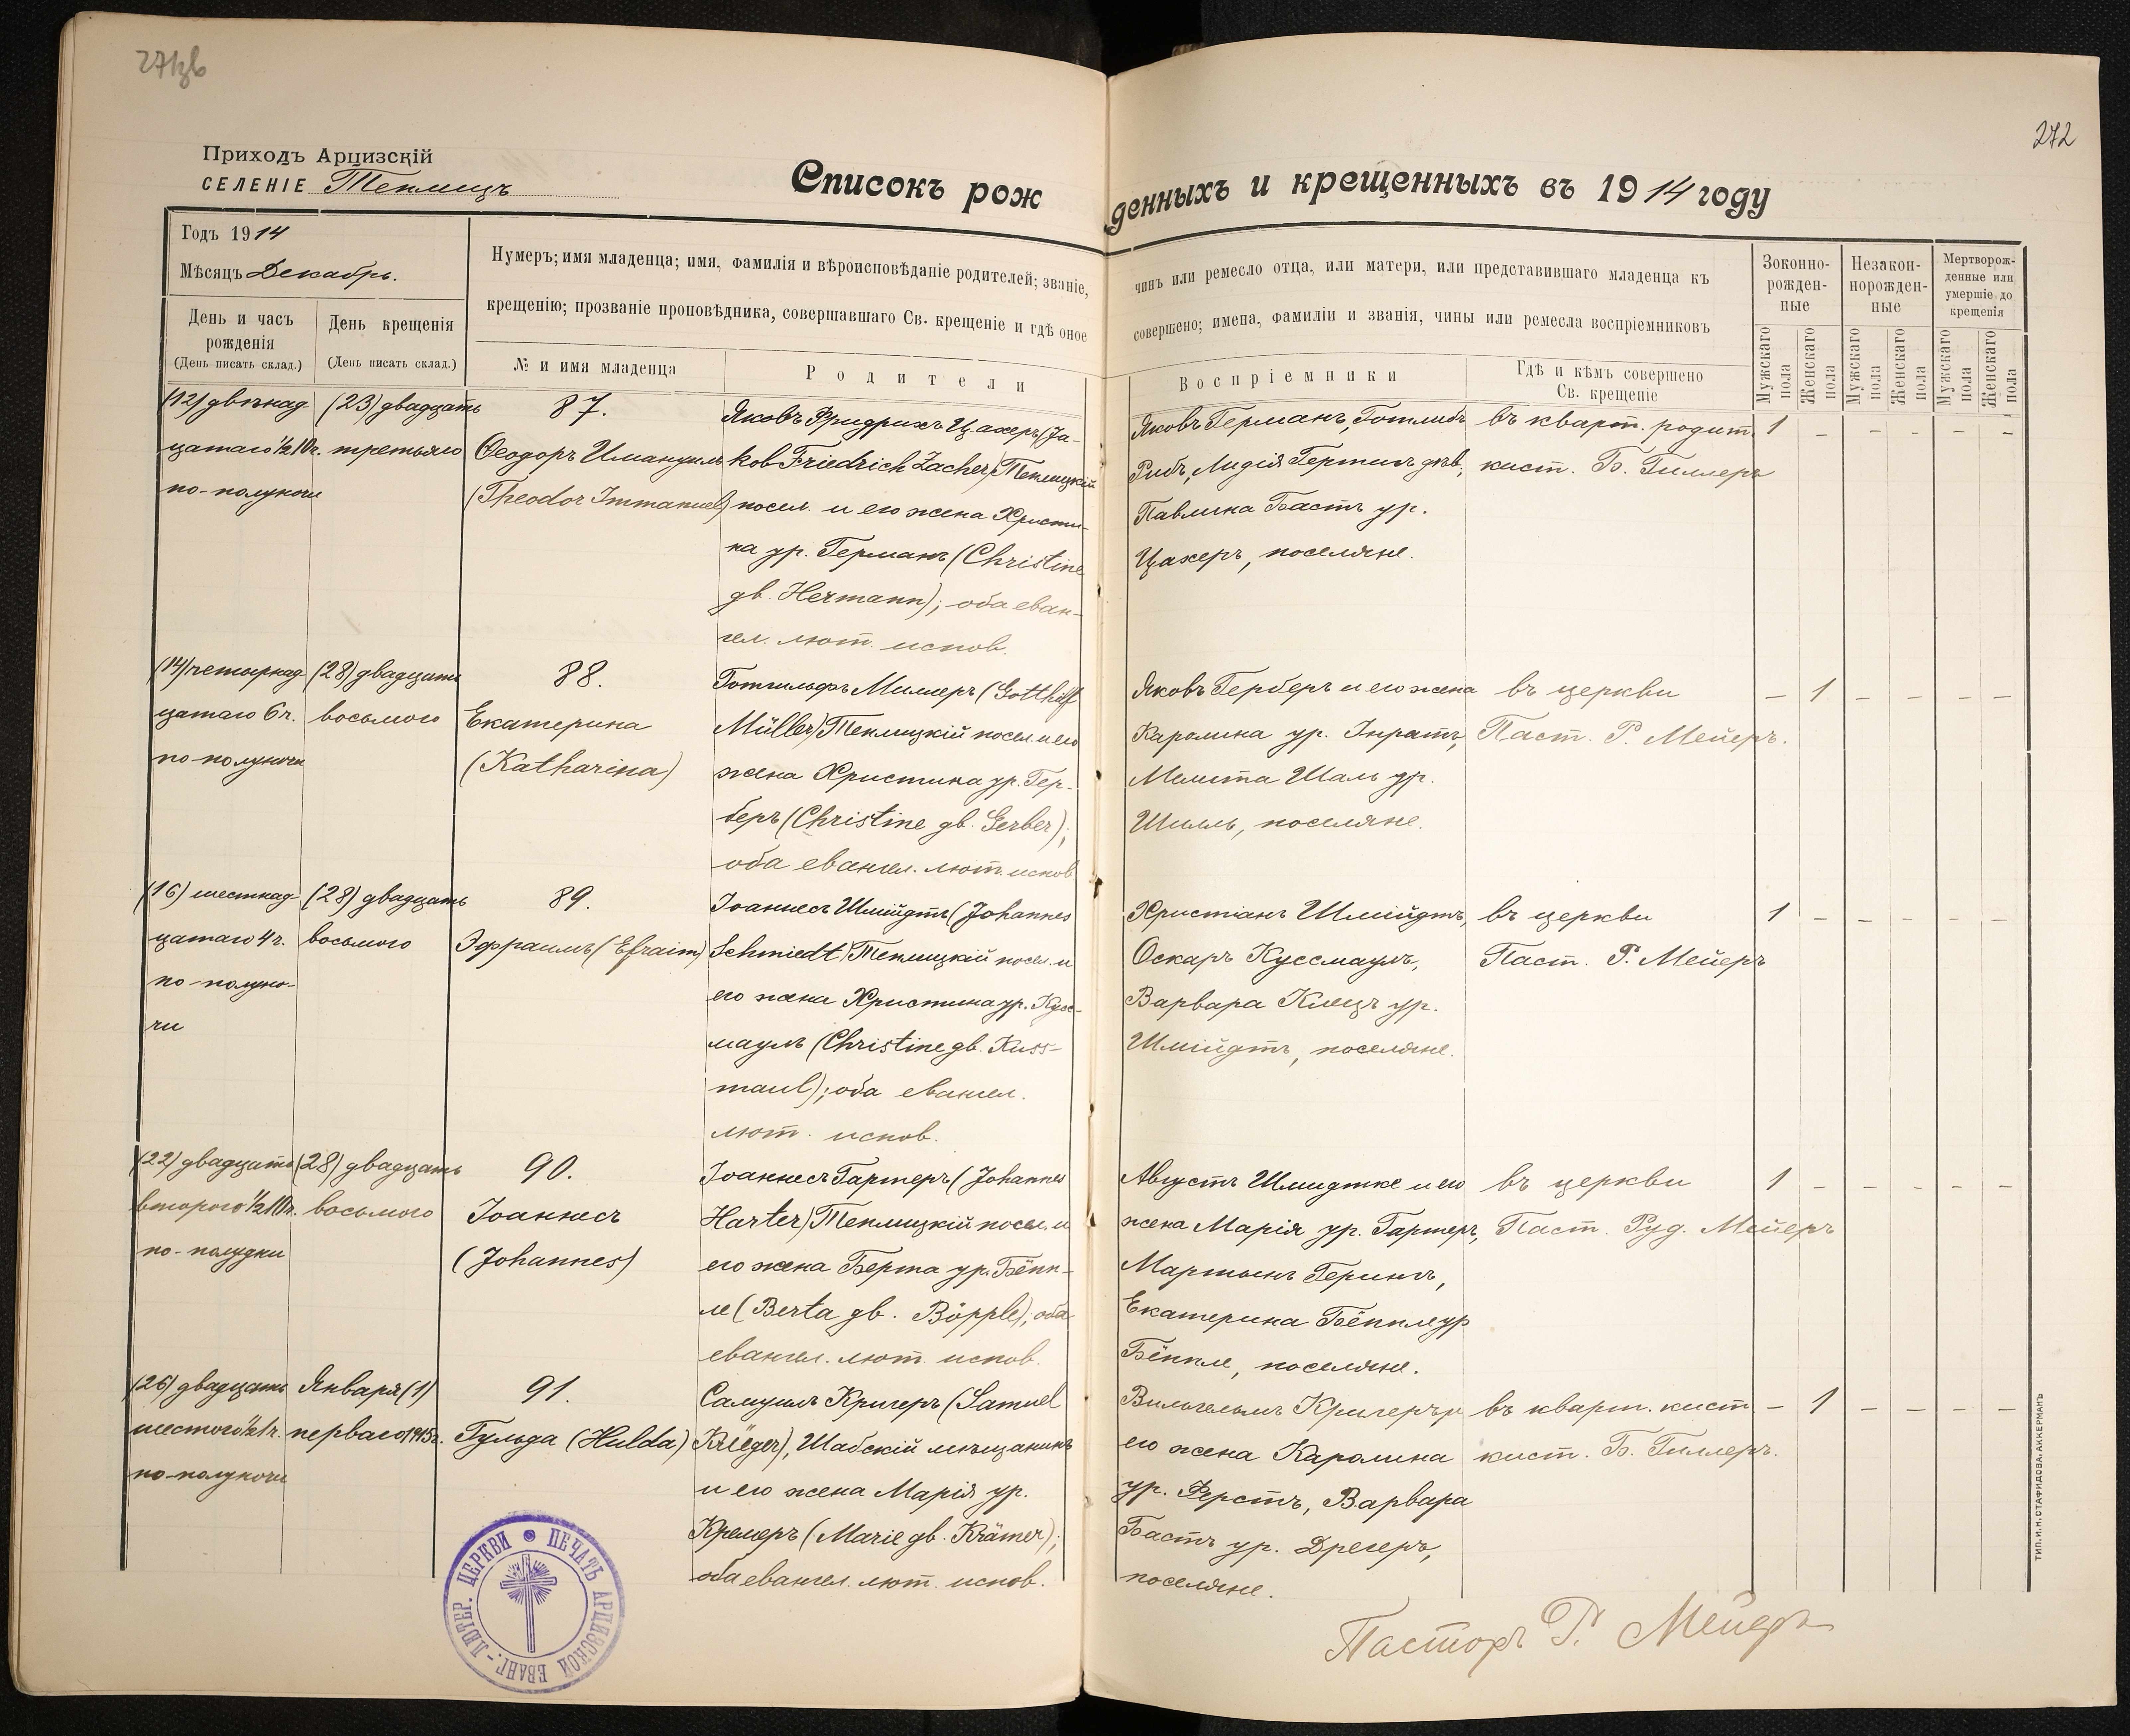 271зв
272
Приходъ Арцизскій
СЕЛЕНІЕ Теплицъ
Списокъ рожденныхъ и крещенныхъ въ 1914 году
Годъ 1914
Мѣсяцъ Декабрь.
День и часъ
рожденія
(День писать склад.)
День крещенія
(День писать склад.)
Нумеръ; имя младенца; имя, фамилія и вѣроисповѣданіе родителей; званіе, чинъ или ремесло отца, или матери, или представившаго младенца къ
крещенію; прозваніе проповѣдника, совершавшаго Св. крещеніе и гдѣ оное совершено; имена, фамиліи и званія, чины или ремесла воспріемниковъ
№ и имя младенца
Родители
Воспріемники
Гдѣ и кѣмъ совершено
Св. крещеніе
Зоконно-
рожден-
ные
Незакон-
норожден-
ные
Мертворож-
денные или
умершіе до
крещенія
Мужскаго
пола
Женскаго
пола
Мужскаго
пола
Женскаго
пола
Мужскаго
пола
Женскаго
пола
(12) двѣнад-
цатаго ½10ч.
по-полуночи
(23) двадцать
третьяго
87.
Ѳеодоръ Имануилъ
(Theodor Immanuel)
Яковъ Фридрихъ Цахеръ (Ja-
kob Friedrich Zacher) Теплицкій
посел. и его жена Христи-
на ур. Германъ (Christine
дв. Hermann); оба еван-
гел. лют. испов.
Яковъ Германъ, Готлибъ
Рибъ, Лидія Гертигъ дѣв.,
Павлина Бастъ ур.
Цахеръ, поселяне.
въ кварт. родит.
кист. Б. Гиллеръ
1 – – – – –
(14) четырнад-
цатаго 6ч.
по-полуночи
(28) двадцать
восьмого
88.
Екатерина
(Katharina)
Готгильфъ Миллеръ (Gotthilf
Müller) Теплицкій посел. и его
жена Христина ур. Гер-
беръ (Christine дв. Gerber);
оба евангел. лют. испов
Яковъ Герберъ и его жена
Каролина ур. Инратъ,
Мелита Шаль ур.
Шилль, поселяне.
въ церкви
Паст. Р. Мейеръ.
– 1 – – – –
(16) шестнад-
цатаго 4ч.
по-полуно-
чи
(28) двадцать
восьмого
89.
Эфраимъ (Efraim)
Іоаннесъ Шмийдтъ (Johannes
Schmiedt) Теплицкій посел. и
его жена Христина ур. Кусс-
маулъ (Christine дв. Kuss-
maul); оба евангел.
лют. испов.
Христіанъ Шмийдтъ,
Оскаръ Куссмаулъ,
Варвара Клецъ ур.
Шмийдтъ, поселяне.
въ церкви
Паст. Р. Мейеръ
1 – – – – –
(22) двадцать
второго ½10ч.
по-полудни
(28) двадцать
восьмого
90.
Іоаннесъ
(Johannes)
Іоаннесъ Гартеръ (Johannes
Harter) Теплицкій посел. и
его жена Берта ур. Бёпп-
ле (Berta дв. Böpple); оба
евангел. лют. испов.
Августъ Шмидтке и его
жена Марія ур. Гартеръ,
Мартынъ Герингъ,
Екатерина Бёппле ур
Бёппле, поселяне.
въ церкви
Паст. Руд. Мейеръ
1 – – – – –
(26) двадцать
шестого ½1ч.
по-полуночи
Января (1)
перваго 1915г.
91.
Гульда (Hulda)
Самуилъ Кригеръ (Samuel
Krüger), Шабскій мѣщанинъ
и его жена Марія ур.
Кремеръ (Marie дв. Krämer);
оба евангел. лют. испов.
Вильгельмъ Кригеръ и
его жена Каролина
ур. Ферстъ, Варвара
Бастъ ур. Дрегеръ,
поселяне.
въ кварт. кист.
кист. Б. Гиллеръ.
– 1 – – – –
ПЕЧАТЬ АРЦИЗСКОЙ ЕВАНГ.-ЛЮТЕР. ЦЕРКВИ
Пасторъ Р. Мейеръ
ТИП.И.Н.СТАФИДОВА.АККЕРМАНЪ